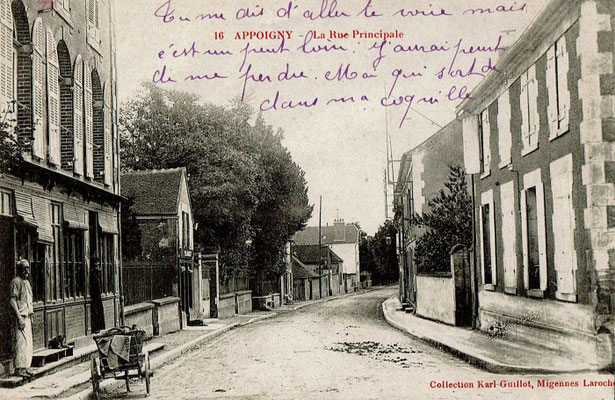 Tu me dis d'aller te voire mais
16 APPOIGNY - La Rue Principale
c'est un peut loin. J'aurai peut
de me perdre. Moi qui sort de
dans ma coquille
Collection Karl-Guillot, Migennes Laroche